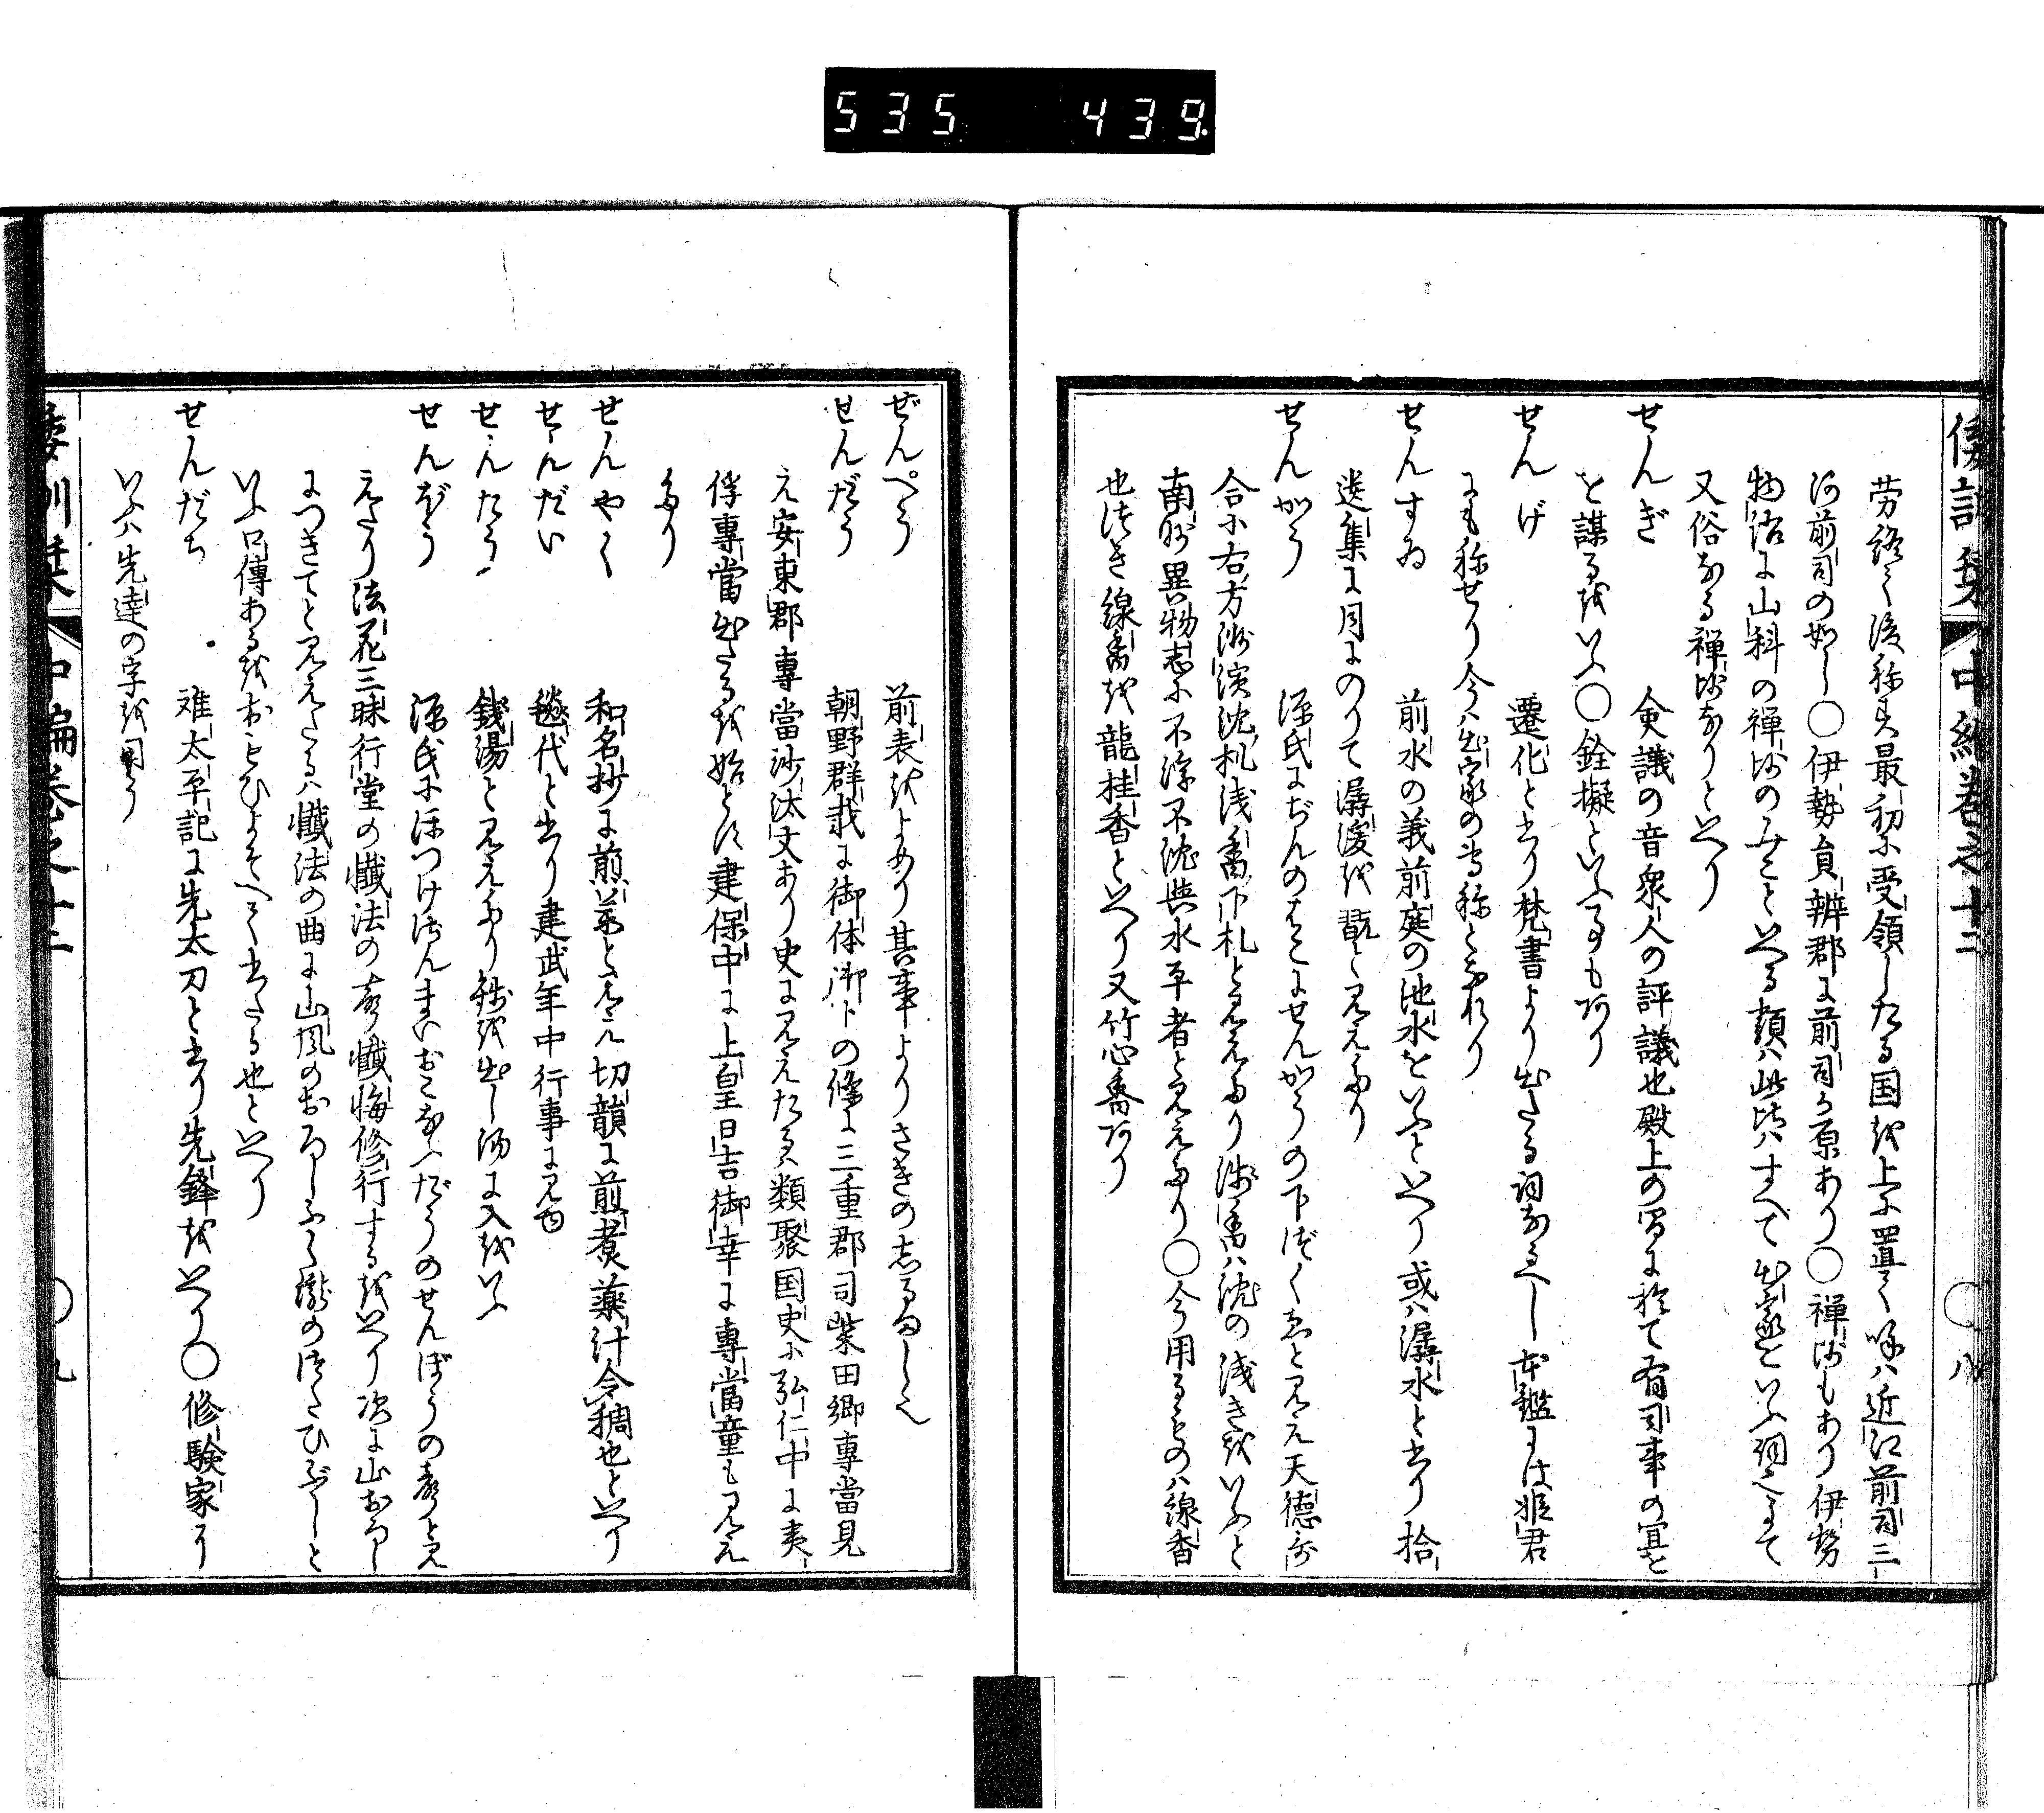 535 439
倭訓栞 中編巻之十二 ○八
労終て後称す最初に受領したる国を上に置く喩ハ近江前司三
河前司の如し○伊勢員辨郡に前司か原あり○禅師もあり伊勢
物語に山科の禅師のみこといへる類ハ此比ハすへて出家をいふ詞にて
又俗なる禅師なりといへり
せんぎ 僉議の音衆人の評議也殿上の間に於て有司事の冝を
を謀るをいふ○銓擬といふるもあり
せんげ 遷化と書り梵書より出たる詞なるへし本鑑には姫君
にも称せり今ハ出家の尊称となれり
せんすゐ 前水の義前庭の池水をいふといへり或ハ潺水と書り拾
遺集に月にのりて潺湲を翫と見えたり
せんかう 源氏にぢんのはこにせんかうの下づくゑと見え天徳哥
合に右方洲濱沈札浅香下札と見えたり浅香ハ沈の浅きをいふと
南州異物志に不深不沈與水平者と見えたり○今用るものハ線香
也ほそき線香を龍桂香といへり又竹心香あり
ぜんぺう 前表をよめり其事よりさきのしるし也
せんだう 朝野群載に御体御卜の條に三重郡司柴田郷專當見
え安東郡專當沙汰文あり史に見えたるハ類聚国史に弘仁中に夷
俘專當出たるを始とす建保中に上皇日吉御幸に專當童も見え
たり
せんやく 和名抄に煎薬と見え切韻に煎煮薬汁令稠也といへり
せんだい 氈代と書り建武年中行事に見ゆ
せんたう 銭湯と見えたり銭を出し湯に入をいふ
せんぼう 源氏にほつけざんまいおこなふだうのせんぼうの声と見
えたり法花三昧行堂の懺法の声懺悔修行するをいへり次に山おろし
につきてと見えたるハ懺法の曲に山風のおろしふく瀧のほそひゞしと
いふ口傳あるをおもひよそへて書たる也といへり
せんだち 難太平記に先太刀と書り先鋒をいへり○修験家に
いふハ先達の字を用う
倭訓栞 中編巻之十二 ○九